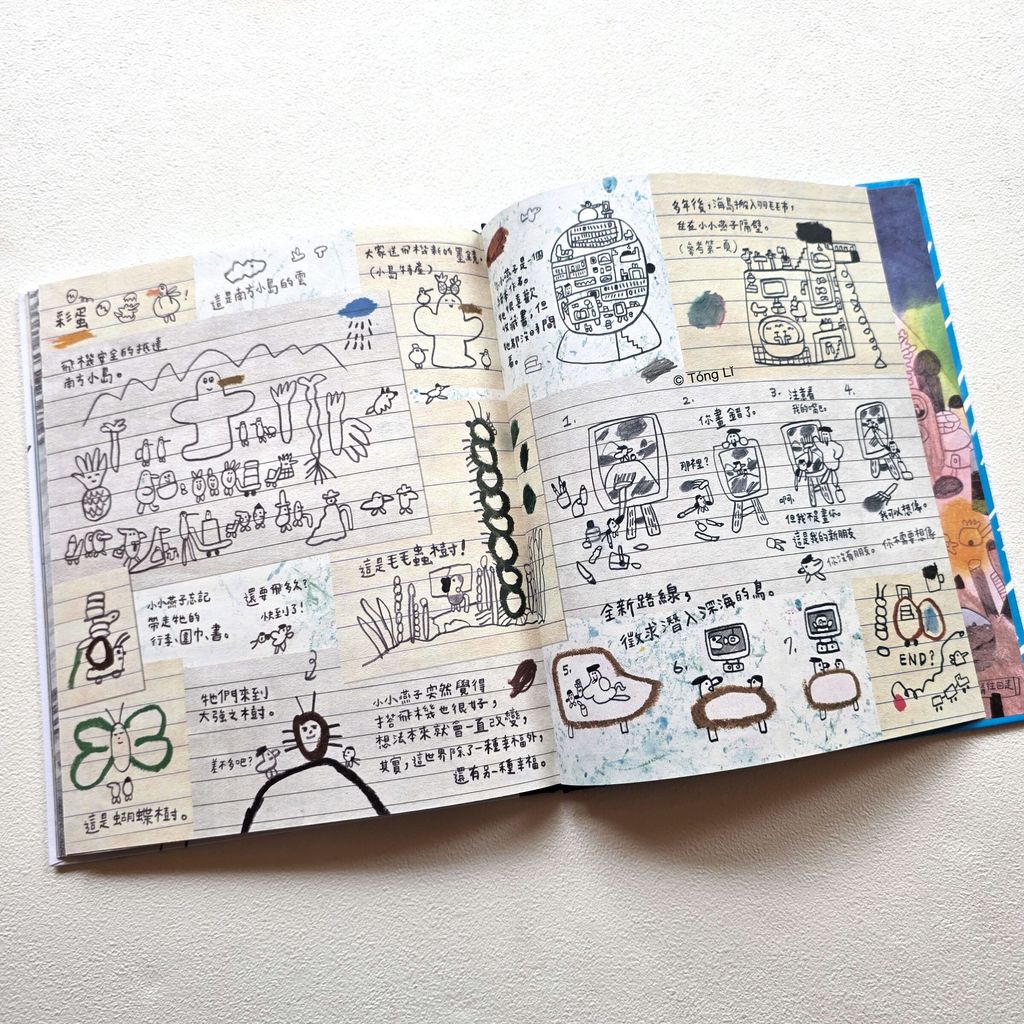 彩蛋
!
這是南方小島的雲
大家送飛機新的
(小島特產)
飛機安全的抵達
南方小島。
這是毛毛蟲樹!
小小燕子忘記
帶走牠的
行李、圍巾、書。
還要飛多久?
快到了!
這是蝴蝶樹。
牠們來到
大強之樹。
差不多吧?
小小燕子突然覺得
搭飛機也很好,
想法本來就會一直改變,
其實,這世界除了一種幸福外,
還有另一種幸福。
燕子是一個
他很喜歡
收藏書,但
他都沒時間
看。
多年後,海鳥搬入羽毛市,
住在小小燕子隔壁。
(參考第一頁)
© Tóng Lǐ
1.
2.
你畫錯了。
那裡?
3.
注意看
我的嘴巴。
但我不是畫你。
這是我的新朋友
你沒有朋友。
4.
我可以想像。
你不需要想像
全新路線,
徵求潛入深海的鳥。
5.
6.
7.
END?